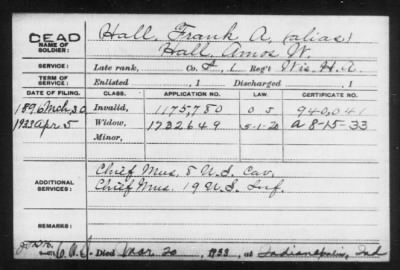 DEAD
NAME OF SOLDIER:
Hall, Frank A. (alias)
Hall, Amos W.
SERVICE: Late rank, Co. I, 1 Reg't Wis. H.A.
TERM OF SERVICE: Enlisted , 1 Discharged , 1
DATE OF FILING. CLASS. APPLICATION NO. LAW. CERTIFICATE NO.
1896 Mch. 30 Invalid, 1175,780 940,041
1933 Apr 5 Widow, 1732649 5-1-20 a 8-15-33
Minor,
ADDITIONAL SERVICES:
Chief Mus. 8 U.S. Cav.
Chief Mus. 19 U.S. Inf.
REMARKS:
Died Mar. 20, 1933, at Indianapolis, Ind